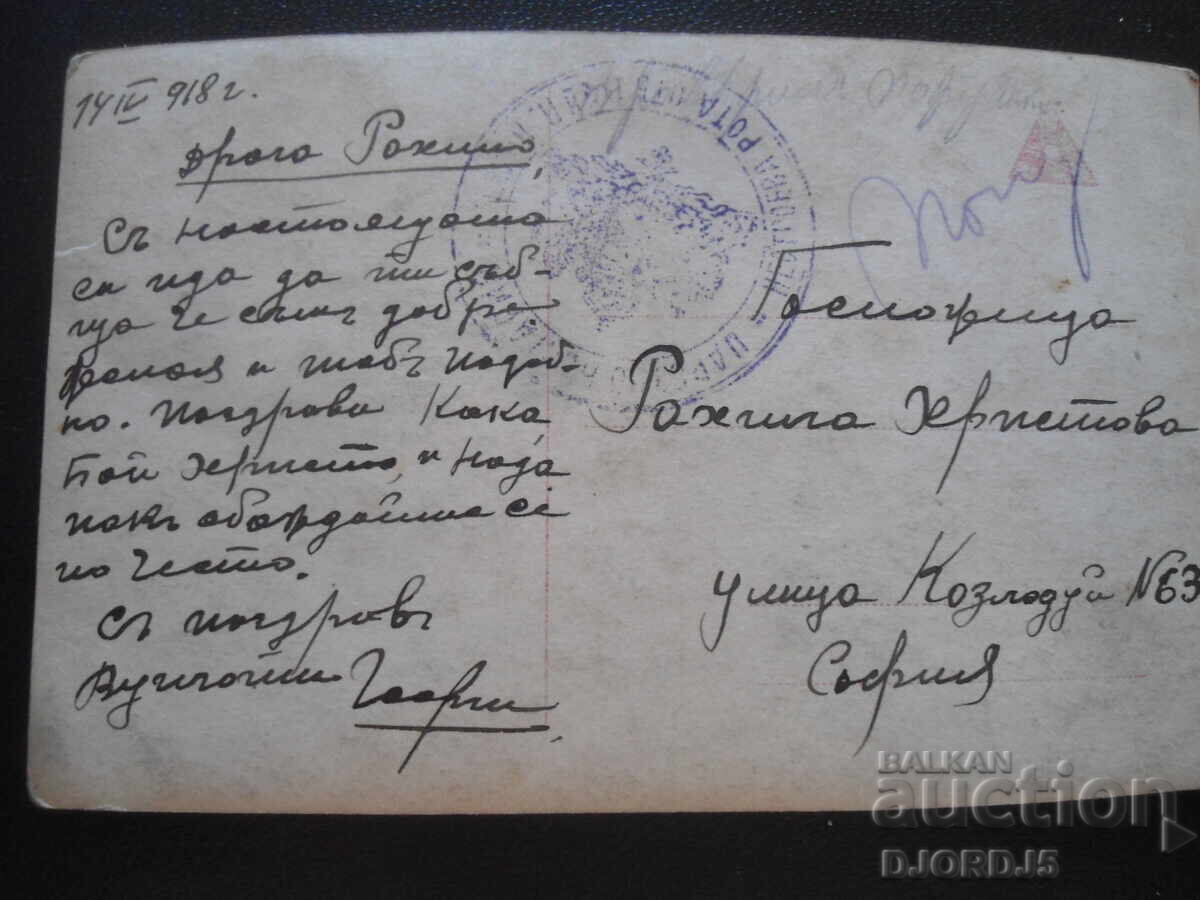 14 IV 918 г.
Драга Рахило,
Съ настоящата
си ида да ти съоб-
ща че съмъ добре.
желая и тебъ подоб-
но. Поздрави Кака
бай Христо, и Надя
пакъ обаждайте се
по често.
Съ поздравъ
Вуйчо ти Георги
Госпожица
Рахила Христова
улица Козлодуй №63
София
РОТА
BALKAN
auction
DJORDJ5